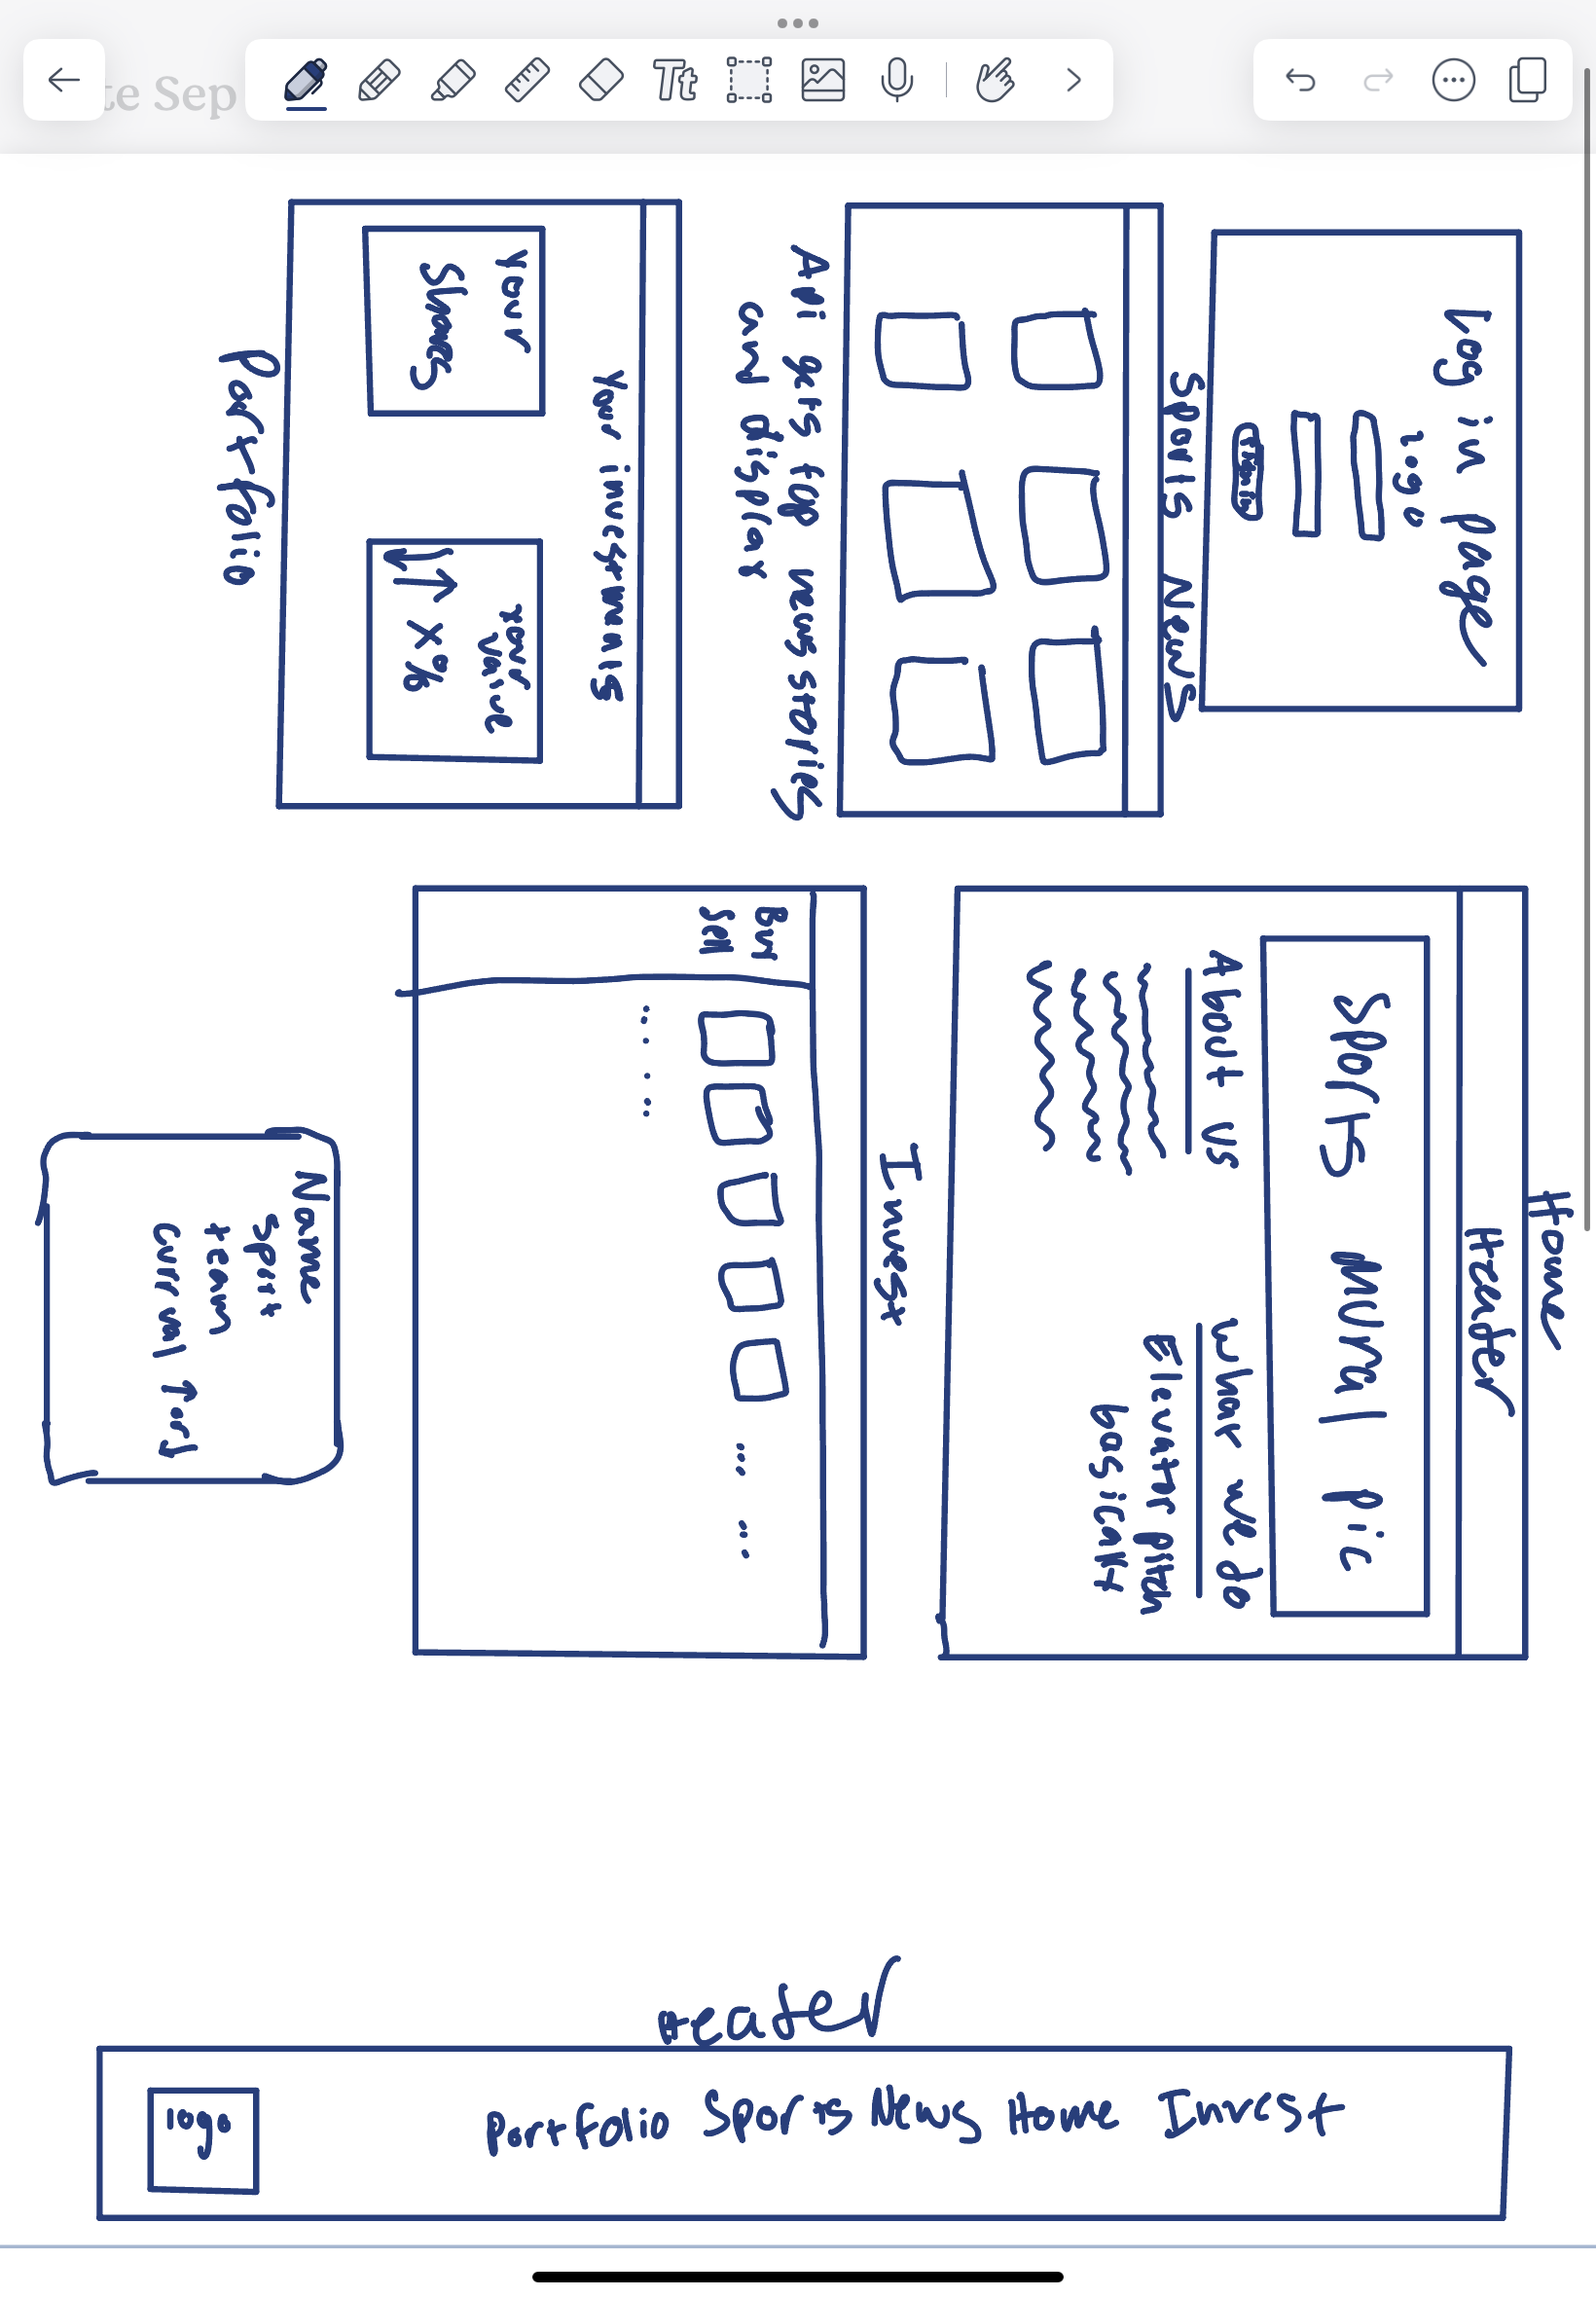 te Sep
Tt
Log in page
logo
Sports News
Api gets top news stories
and display
Your investments
Your
Shares
Your
value
↓↑ X%
Portfolio
Home
Header
Sports Mural pic
About us
What we do
Elevator pitch
basically
Invest
Buy
Sell
... ...
Name
Sport
team
Curr val ↑or↓
Header
logo
Portfolio Sports News Home Invest